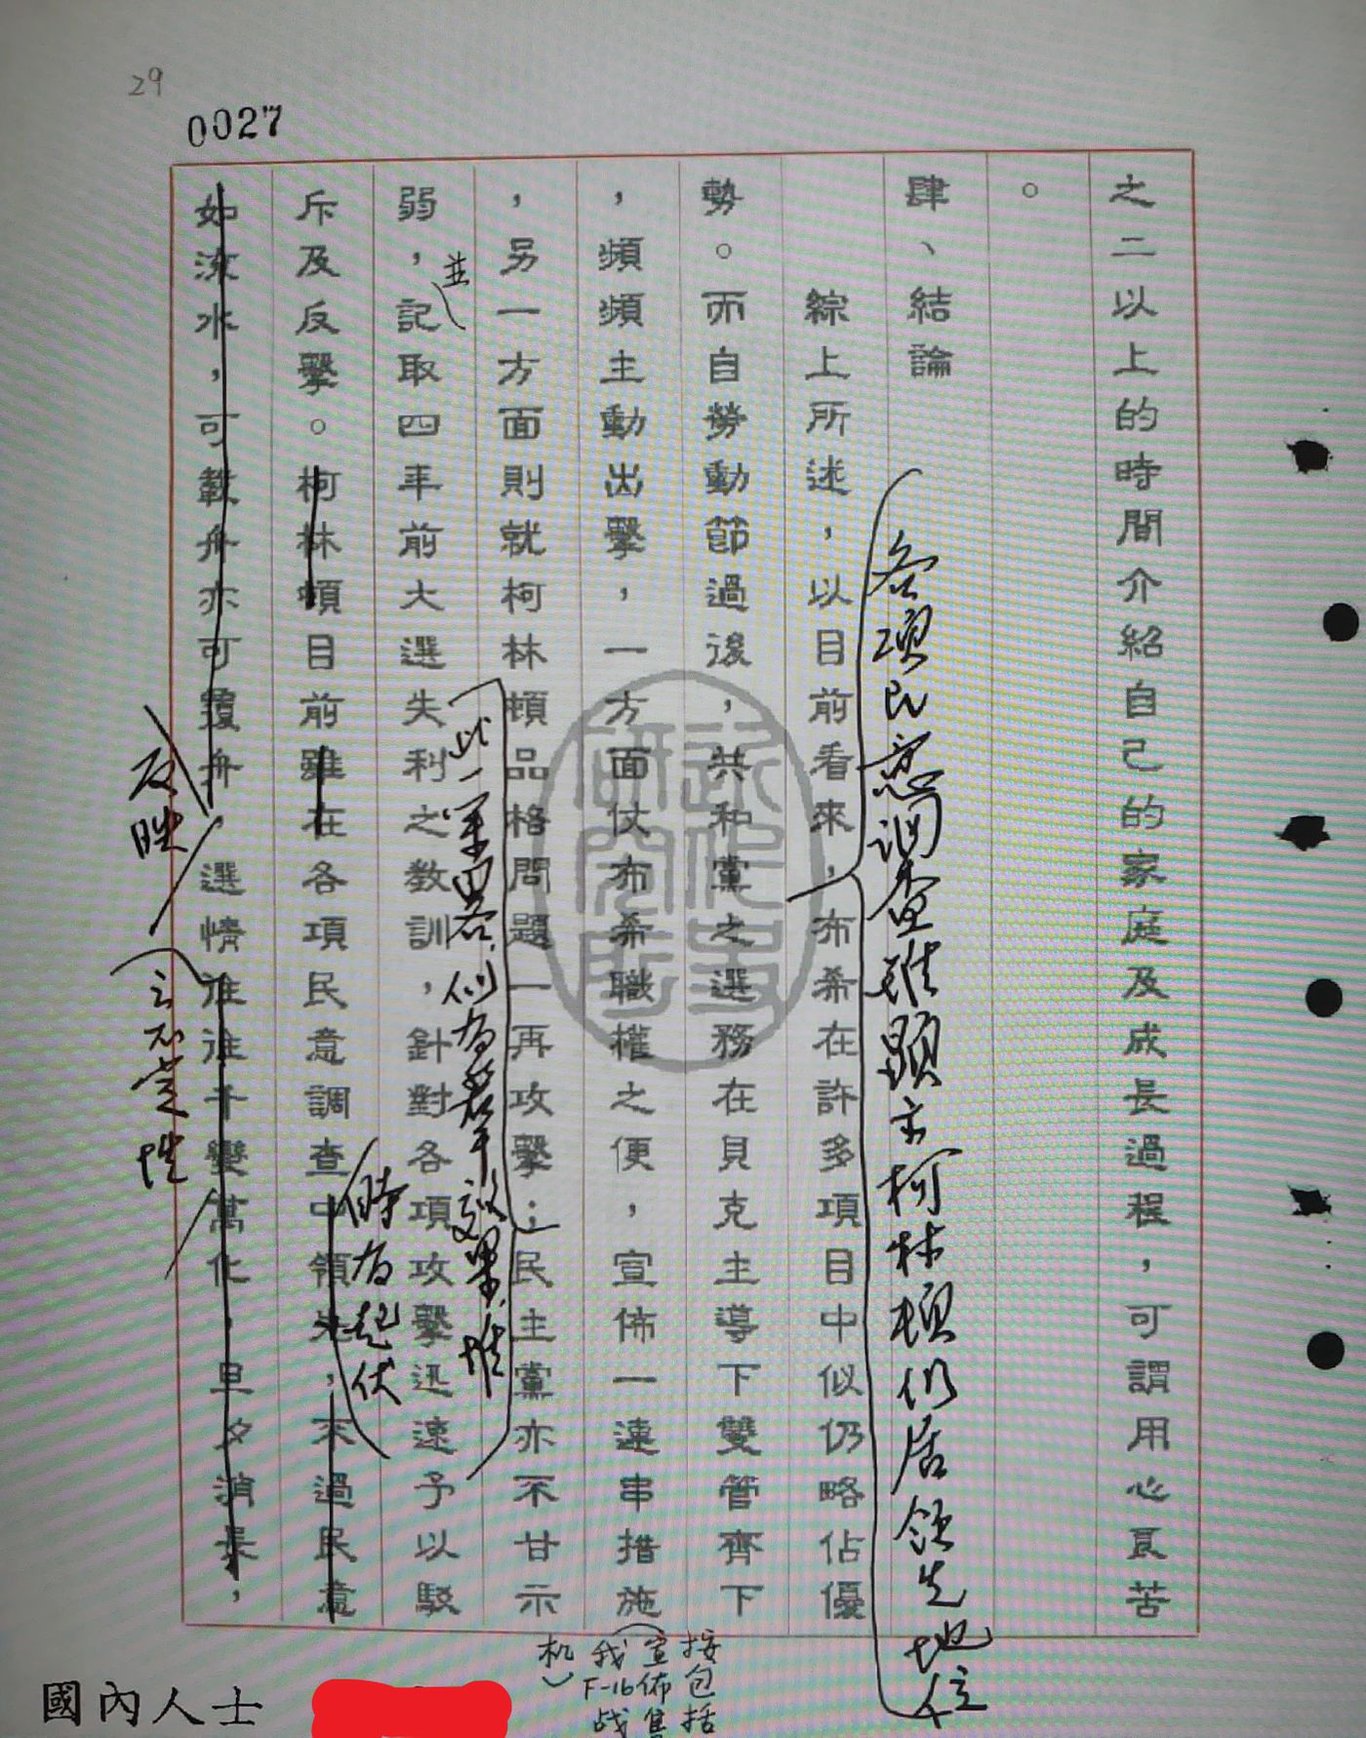 29
0027
之二以上的時間介紹自己的家庭及成長過程，可謂用心良苦
。
肆、結論
各項民意調查雖顯示柯林頓仍居領先地位
綜上所述，以目前看來，布希在許多項目中似仍略佔優
勢。而自勞動節過後，共和黨之選務在貝克主導下雙管齊下
，頻頻主動出擊，一方面仗布希職權之便，宣佈一連串措施
按包括
（宣佈售
我F-16战
机）
，另一方面則就柯林頓品格問題一再攻擊；民主黨亦不甘示
此一策略，似有若干效果，惟
並
弱，記取四年前大選失利之教訓，針對各項攻擊迅速予以駁
時有起伏
斥及反擊。柯林頓目前雖在各項民意調查中領先，不過民意
如流水，可載舟亦可覆舟，選情進進千變萬化，旦夕消長，
反映
不定性
國內人士
研究院